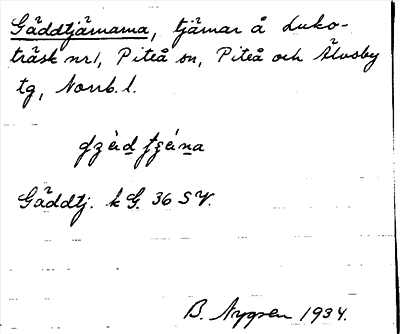 Gäddtjärnarna, tjärnar å Luko-
träsk nr 1, Piteå sn, Piteå och Älvsby
tg, Norrb. l.
Gäddtj. k G. 36 SV.
B. Nygren 1934.